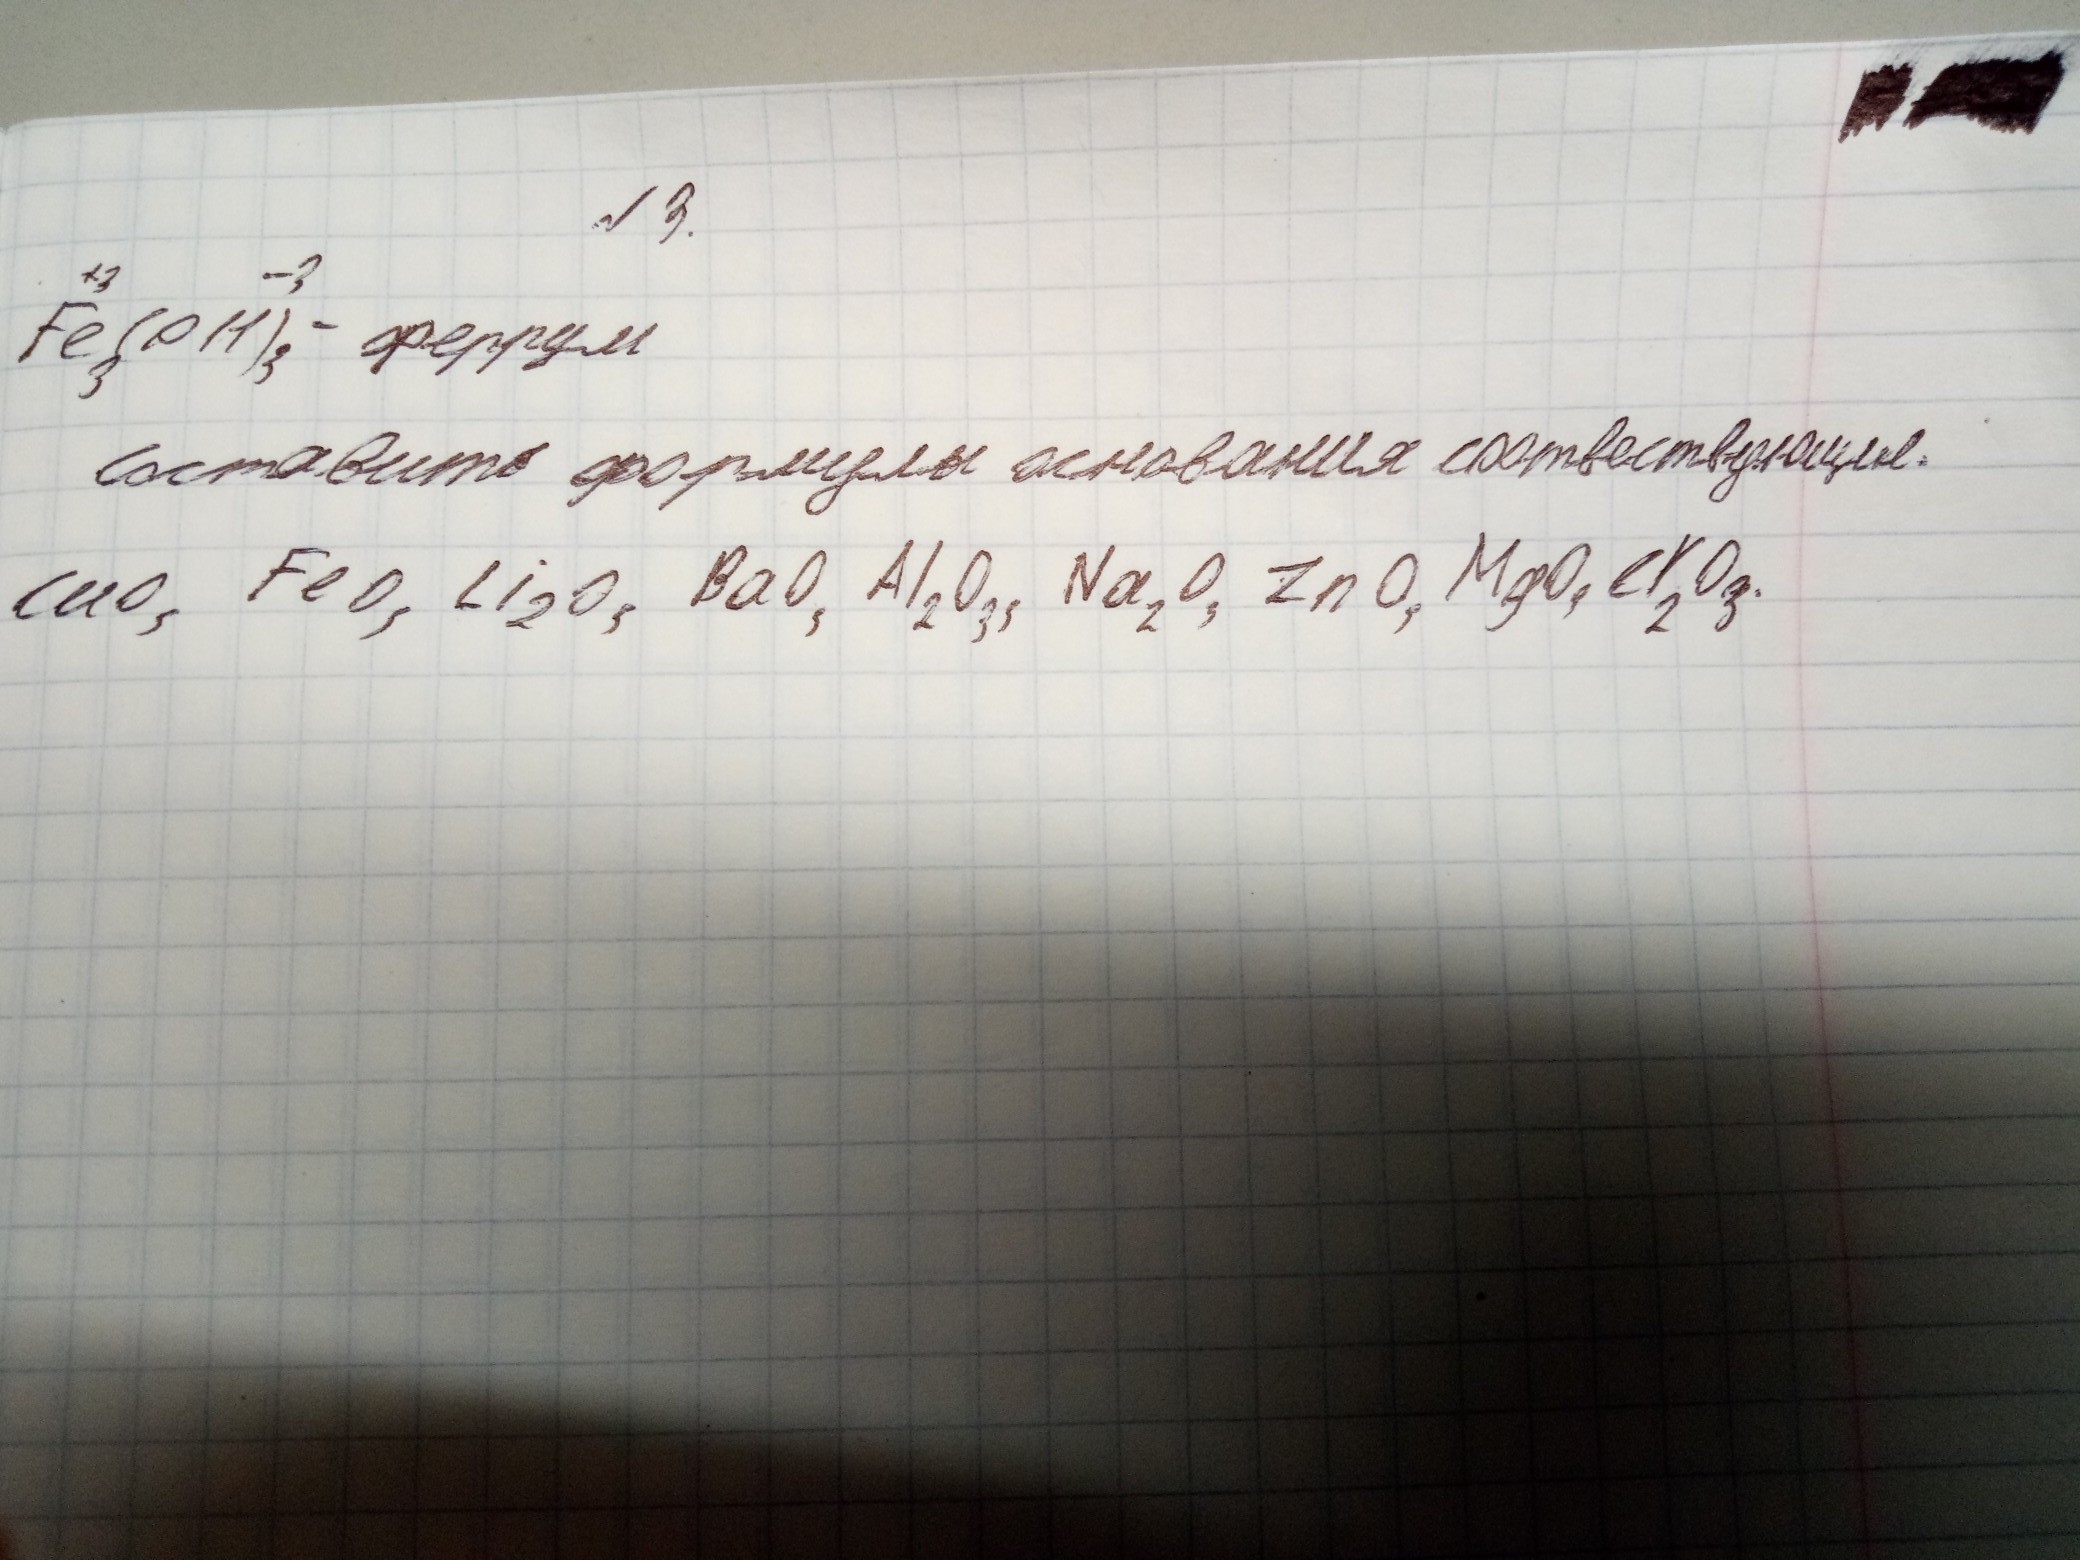 № 3.
+3 -3
Fe₃(OH)₃ - феррум
Составить формулы основания соотвествующие.
CuO, FeO, Li₂O, BaO, Al₂O₃, Na₂O, ZnO, MgO, Cr₂O₃.